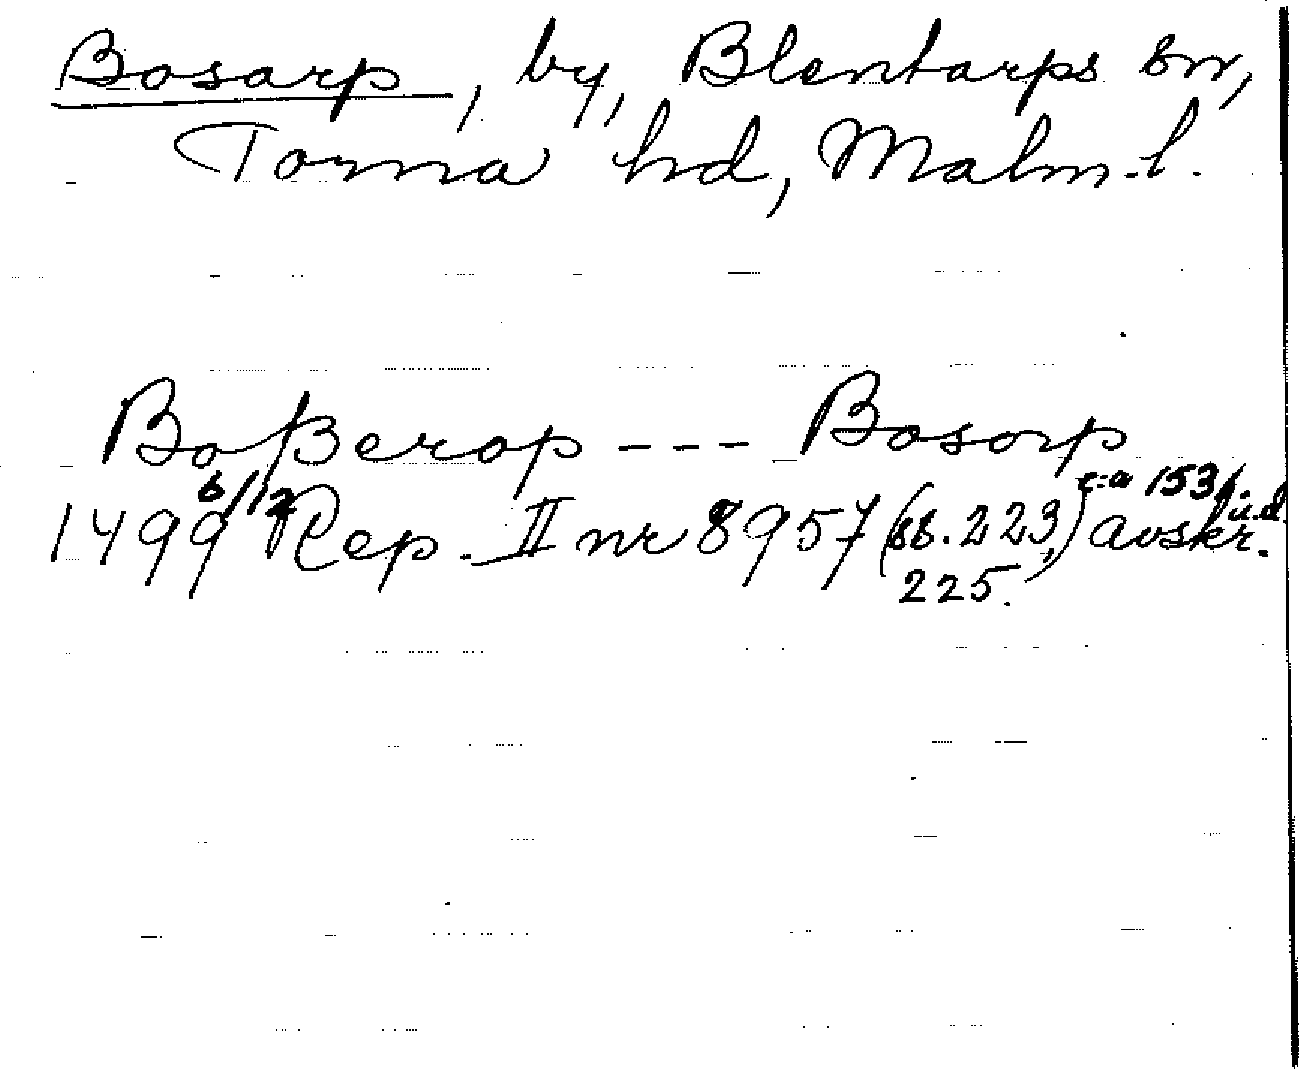 Bosarp, by, Blentarps sn,
Torna hd, Malm.l.
Boßerop --- Bosorp
1499 6/12 Rep. II nr 8957 (ss. 223, 225.) avskr.
ca 153